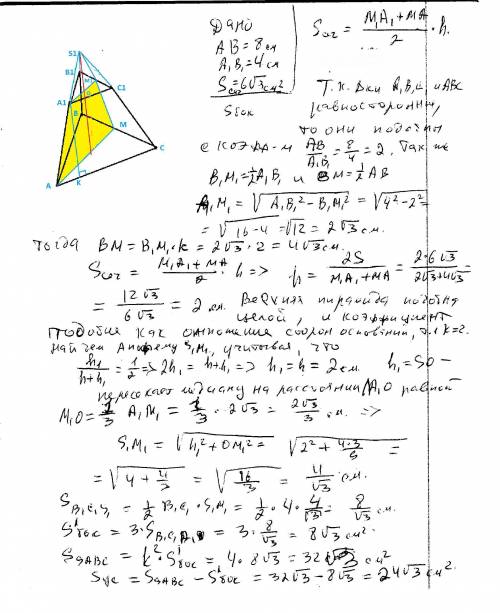 S1
B1
M1
C1
A1
B
M
C
A
K
Дано
AB = 8 см
A₁B₁ = 4 см
Sсеч = 6√3 см²
Sбок
Sсеч = M₁A₁ + MA / 2 · h.
...
Т.к. Δки A₁B₁C₁ и ABC
равносторонни,
то они подобны
с коэфф-м AB/A₁B₁ = 8/4 = 2. Так же
B₁M₁ = ½A₁B₁ и BM = ½AB
A₁M₁ = √A₁B₁² − B₁M₁² = √4² − 2² =
= √16 − 4 = √12 = 2√3 см.
Тогда BM = B₁M₁·k = 2√3 · 2 = 4√3 см.
Sсеч = M₁A₁ + MA / 2 · h => h = 2S / M₁A₁ + MA = 2·6√3 / 2√3 + 4√3 =
= 12√3 / 6√3 = 2 см. Верхняя пирамида подобна
целой, и коэффициент
подобия как отношение сторон оснований, т.е k = 2.
найдем апофему S₁M₁, учитывая, что
h₁ / h + h₁ = 1/2 => 2h₁ = h + h₁ => h₁ = h = 2 см. h₁ = SO −
пересекает медиану на расстоянии M₁O равной
M₁O = 1/3 A₁M₁ = 1/3 · 2√3 = 2√3/3 см. =>
S₁M₁ = √h₁² + OM₁² = √2² + 4·3/9 =
= √4 + 4/3 = √16/3 = 4/√3 см.
S B₁C₁S₁ = ½ B₁C₁ · S₁M₁ = ½ · 4 · 4/√3 = 8/√3 см.
S¹бок = 3 · S B₁C₁S₁ = 3 · 8/√3 = 8√3 см²
S SABC = k² · S¹бок = 4 · 8√3 = 32√3 см²
Sус = S SABC − S¹бок = 32√3 − 8√3 = 24√3 см².